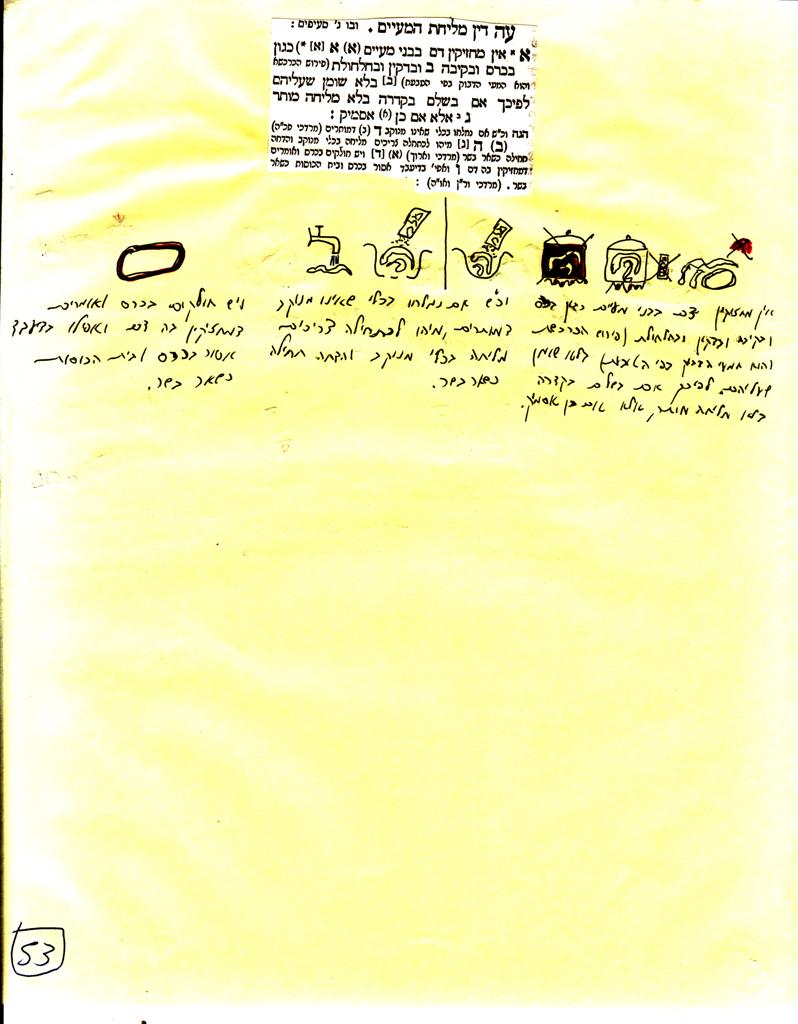 עה דין מליחת המעיים . ובו ג׳ סעיפים :
א * אין מחזיקין דם בבני מעיים (א) א [א] *) כגון
בכרם ובקיבה ב ובדקין ובחלחולת (פירוש הכרכשא
והוא המעי הדבוק בפי הטבעת) [ב] בלא שומן שעליהם
לפיכך אם בשלם בקדרה בלא מליחה מותר
ג י אלא אם כן (א) אסמיק :
הגה וכ״ש אם נמלחו בכלי שאינו מנוקב ד (ב) דמותרים (מרדכי פכ״ה)
(ב) ה [ג] מיהו לכתחלה צריכים מליחה בכלי מנוקב והדחה
תחילה כשאר בשר (מרדכי וארוך) (א) [ד] ויש חולקים בכרס ואומרים
דמחזיקין בה דם ו ואפי׳ בדיעבד אסור בכרס ובית הכוסות כשאר
בשר . (מרדכי ור״ן ואו״ה) :
אין מחזיקין דם בבני מעיים כגון בכרס
ובקיבה ובדקין ובחלחולת (פירוש הכרכשת
והוא המעי הדבוק בפי הטבעת) בלא שומן
שעליהם. לפיכך אם בשלם בקדרה
בלא מליחה מותר, אלא אם כן אסמיק.
וכ״ש אם נמלחו בכלי שאינו מנוקב
דמותרים, מיהו לכתחילה צריכים
מליחה בכלי מנוקב והדחה תחילה
כשאר בשר.
ויש חולקים בכרס ואומרים
דמחזיקין בה דם ואפילו בדיעבד
אסור בכרס ובית הכוסות
כשאר בשר.
53